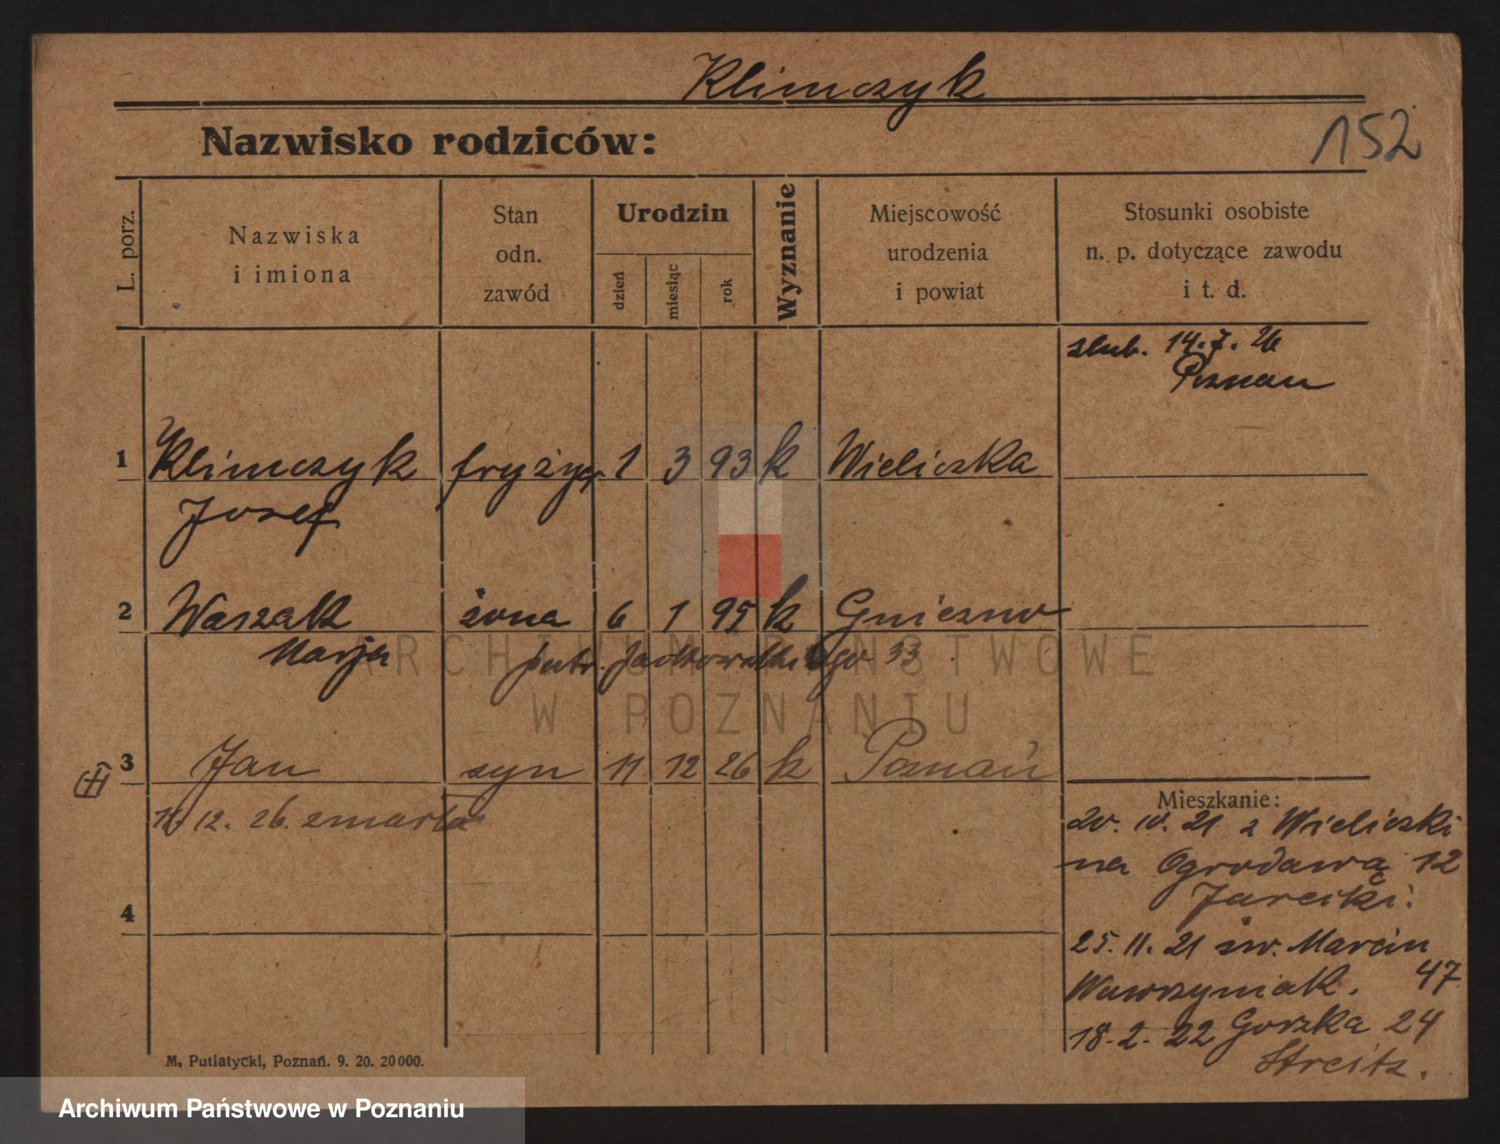 Klimczyk
Nazwisko rodziców:
152
L. porz.
Nazwiska
i imiona
Stan
odn.
zawód
Urodzin
dzień
miesiąc
rok
Wyznanie
Miejscowość
urodzenia
i powiat
Stosunki osobiste
n. p. dotyczące zawodu
i t. d.
ślub. 14.7.26
Poznan
1 Klimczyk fryzyer 1 3 93 k Wieliczka
Jozef
2 Waszak żona 6 1 95 k Gniezno
Marja Jackowskiego 33
ARCHIWUM PAŃSTWOWE
W POZNANIU
3 Jan syn 11 12 26 k Poznań
12. 26. zmarła
Mieszkanie:
20. 10. 21 z Wieliczki
na Ogrodowa 12
4
25. 11. 21 św. Marcin
47
Wawrzyniak.
18. 2. 22 Gorzka 24
Streitz.
M. Putiatycki, Poznań. 9. 20. 20000.
Archiwum Państwowe w Poznaniu